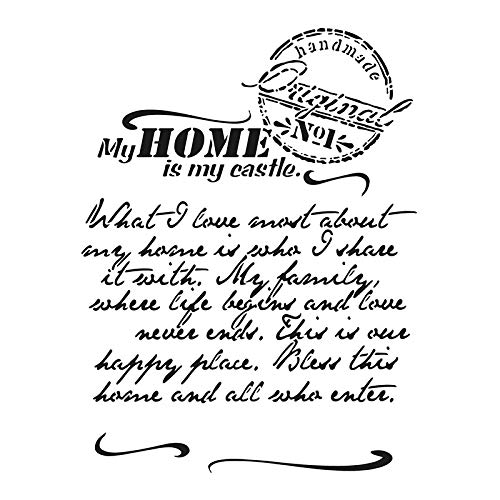 handmade
Original
No1
My HOME
is my castle.
What I love most about
my home is who I share
it with. My family,
where life begins and love
never ends. This is our
happy place. Bless this
home and all who enter.